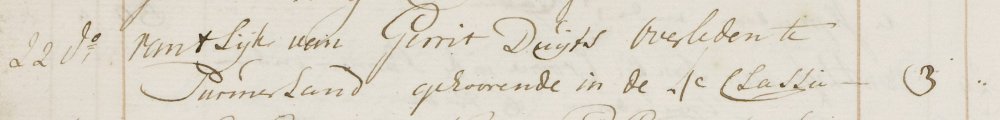 22 do. van t Lijk van Gerrit Duijts overleden te
Purmerland gehoorende in de 4e Classis — 3 "